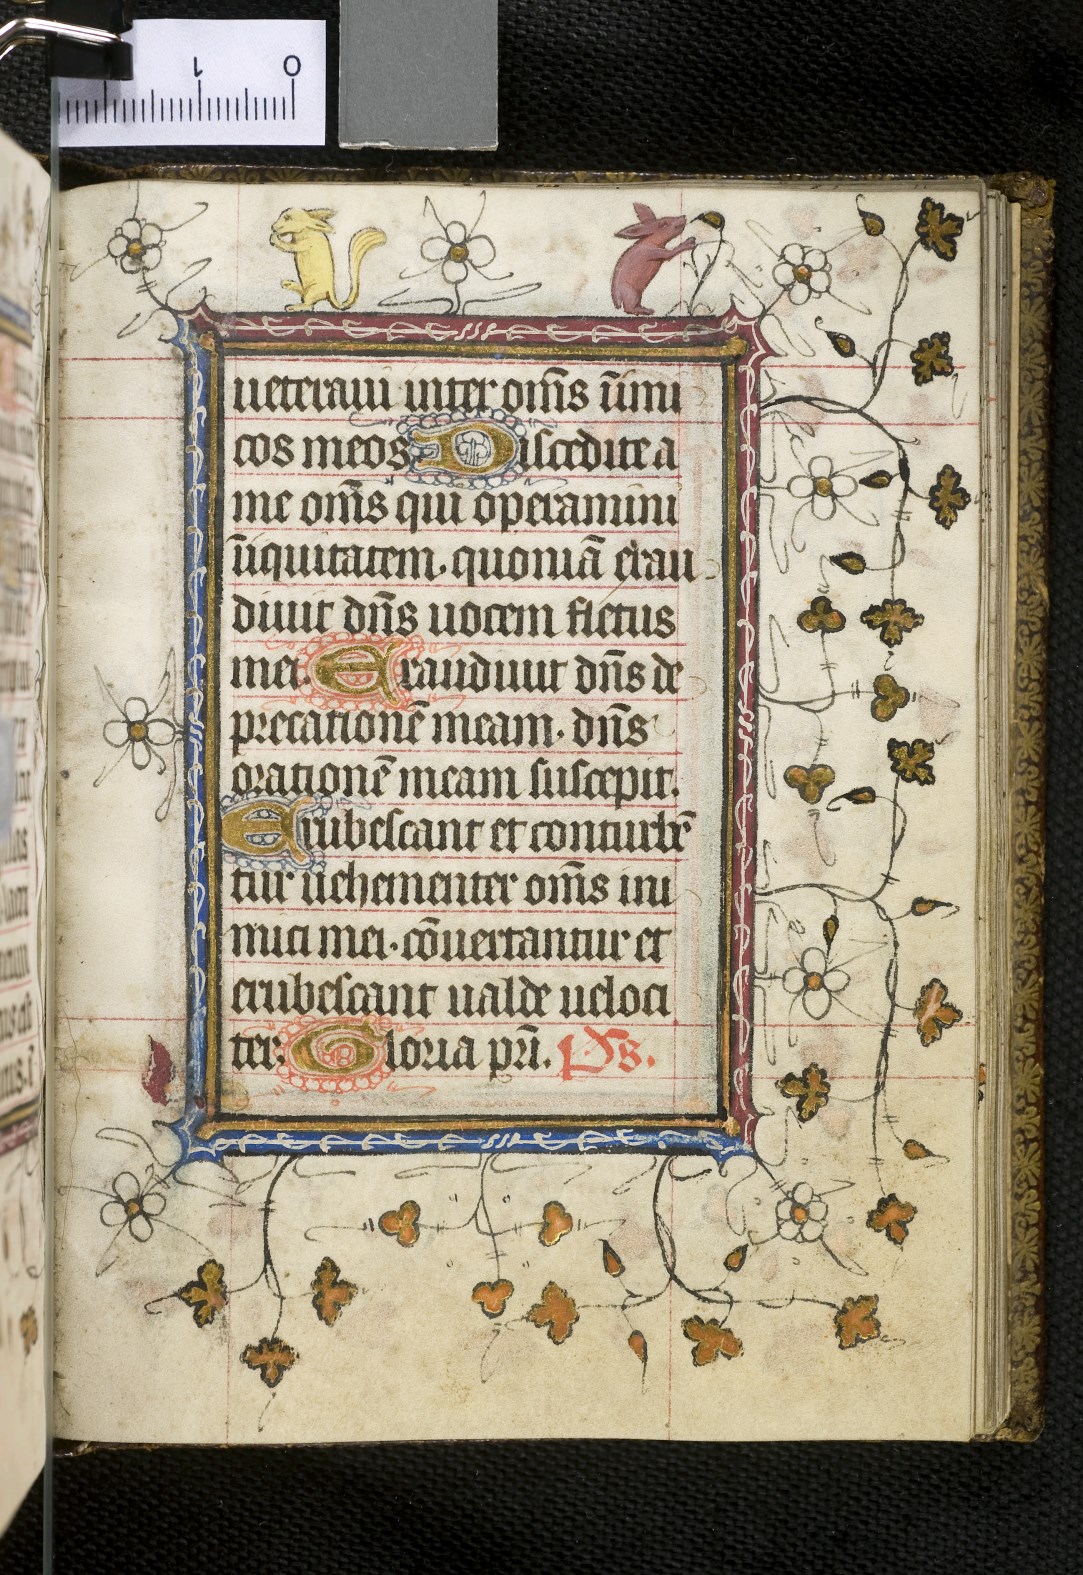 1 0
ueteraui inter om̄s īimi
cos meos. Discedite a
me om̄s qui operamini
īiquitatem. quoniā exau
diuit dn̄s uocem fletus
mei. Exaudiuit dn̄s de
precationē meam. dn̄s
orationē meam suscepit.
Erubescant et conturbē
tur uehementer om̄s ini
mici mei. cōuertantur et
erubescant ualde ueloci
ter. Gloria pr̄i. Ps.